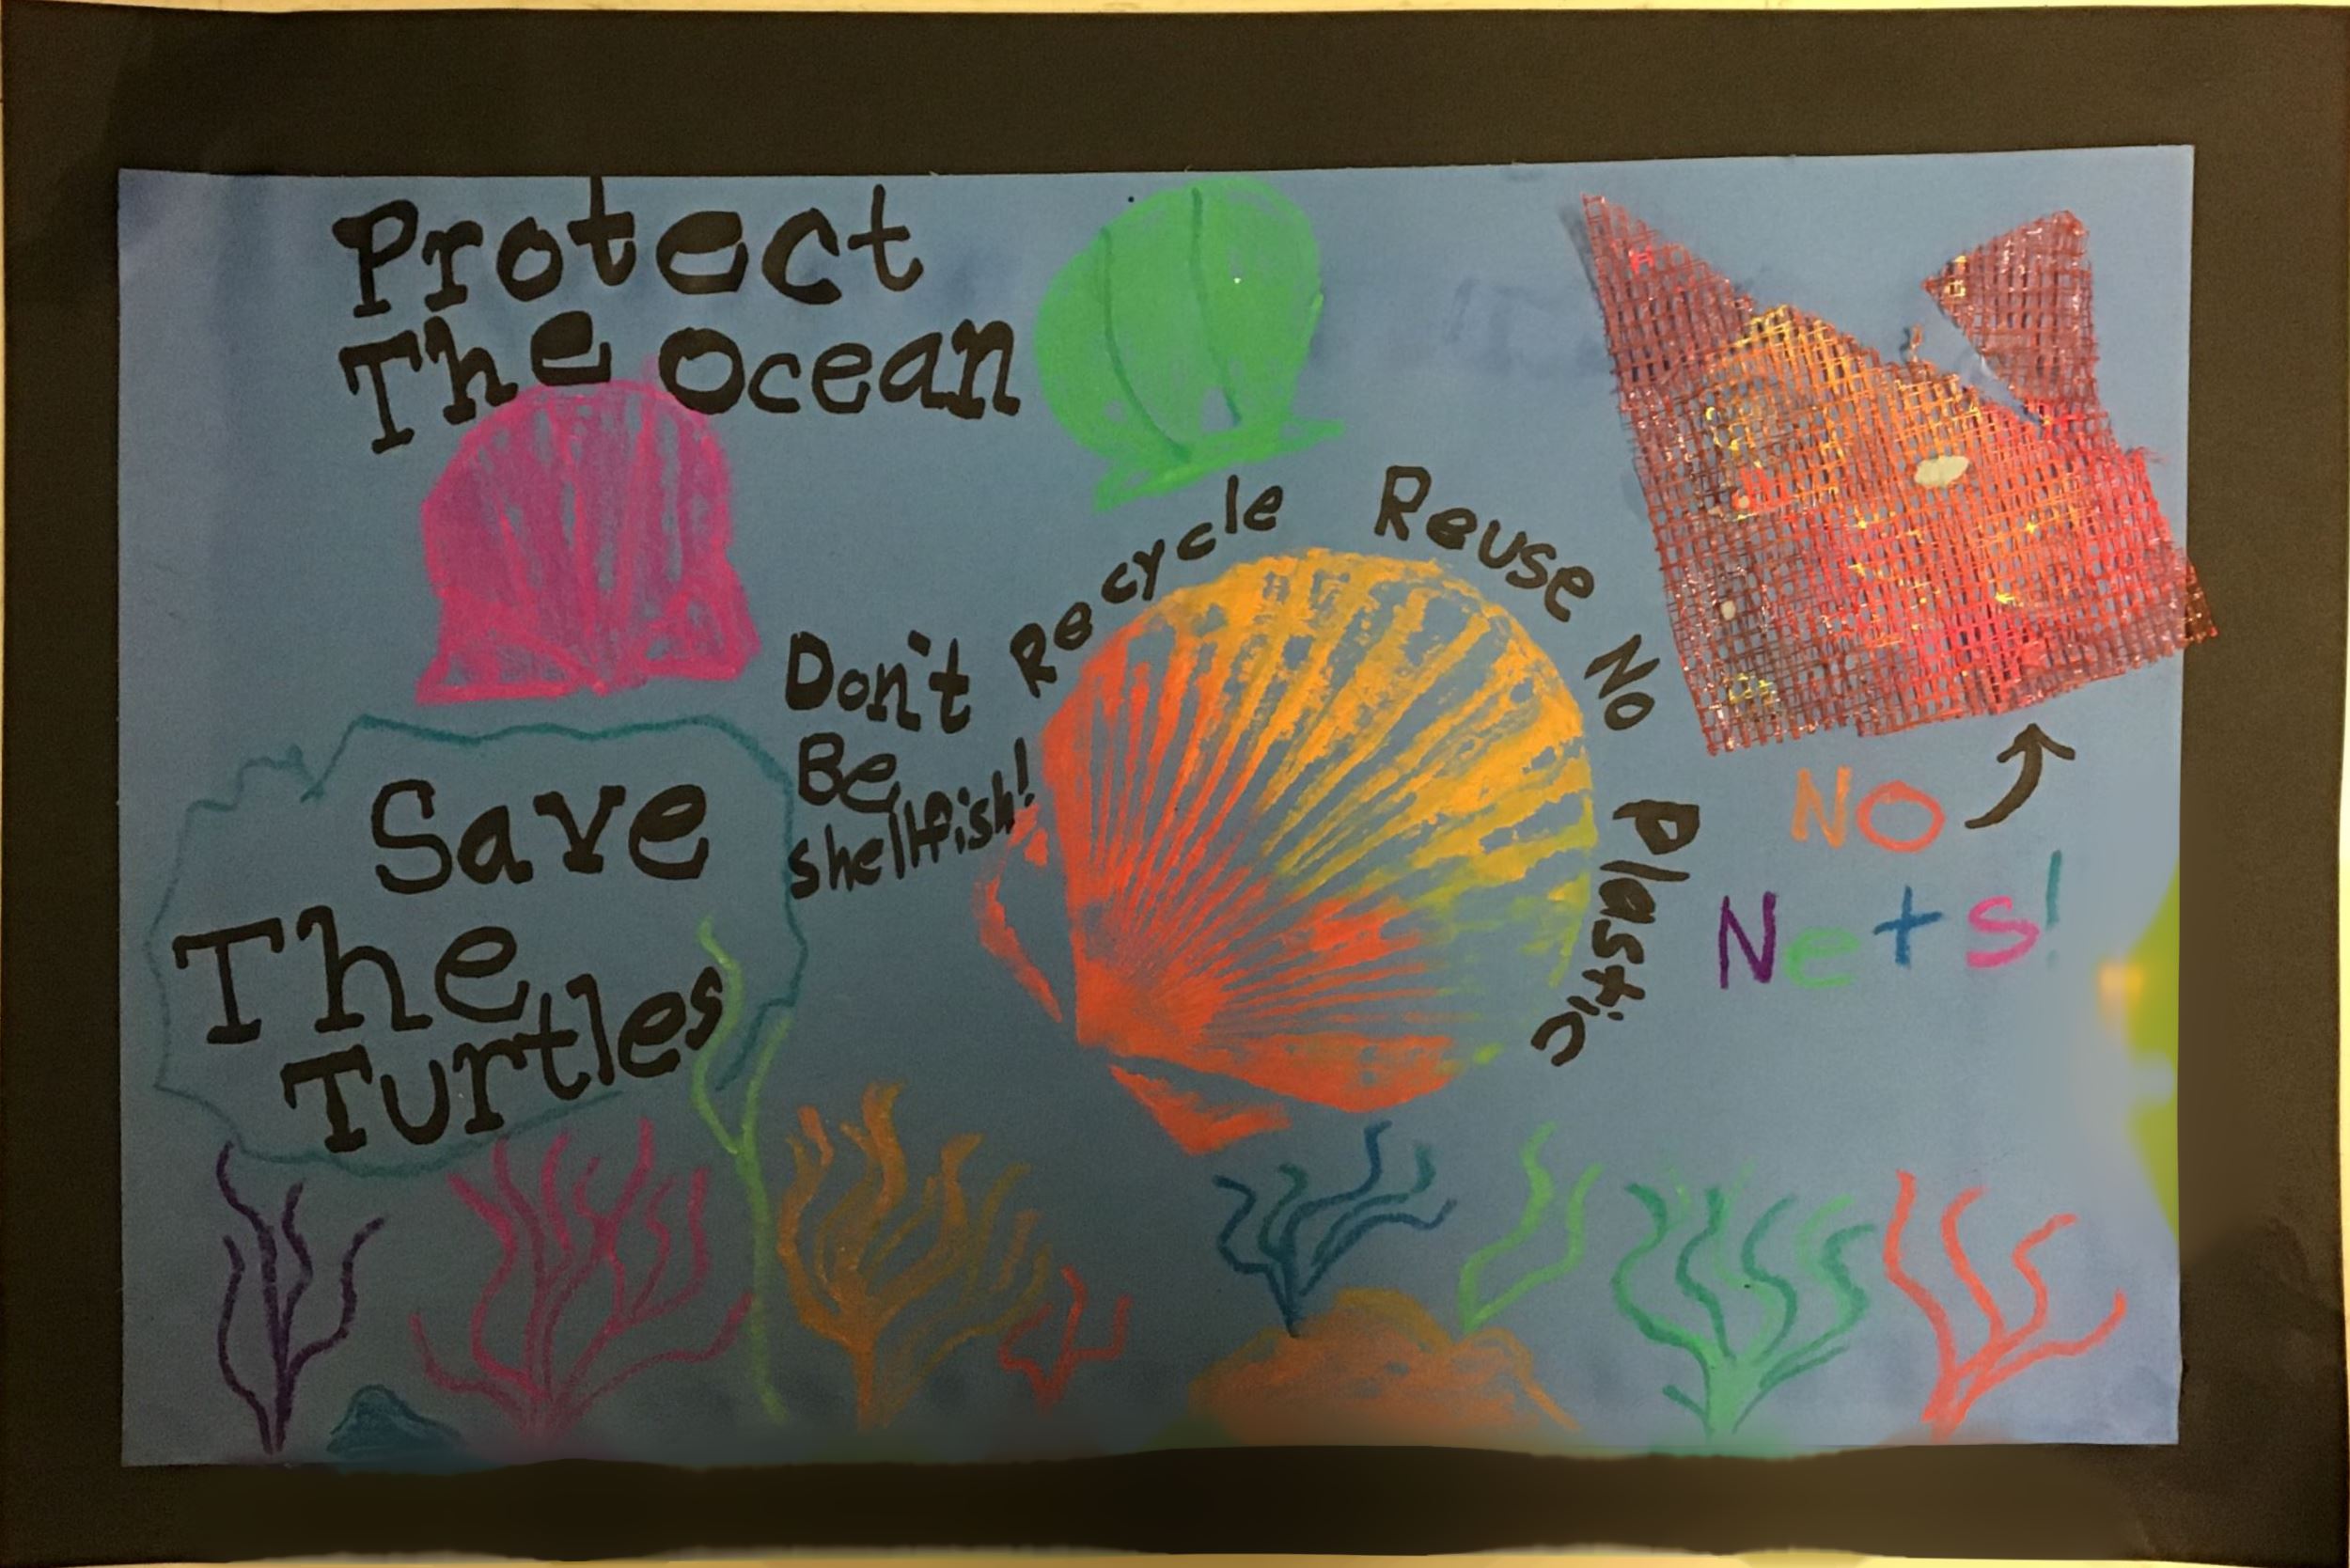 Protect
The Ocean
Recycle Reuse No Plastic
Don't
Be
shellfish!
Save
The
Turtles
NO
Nets!